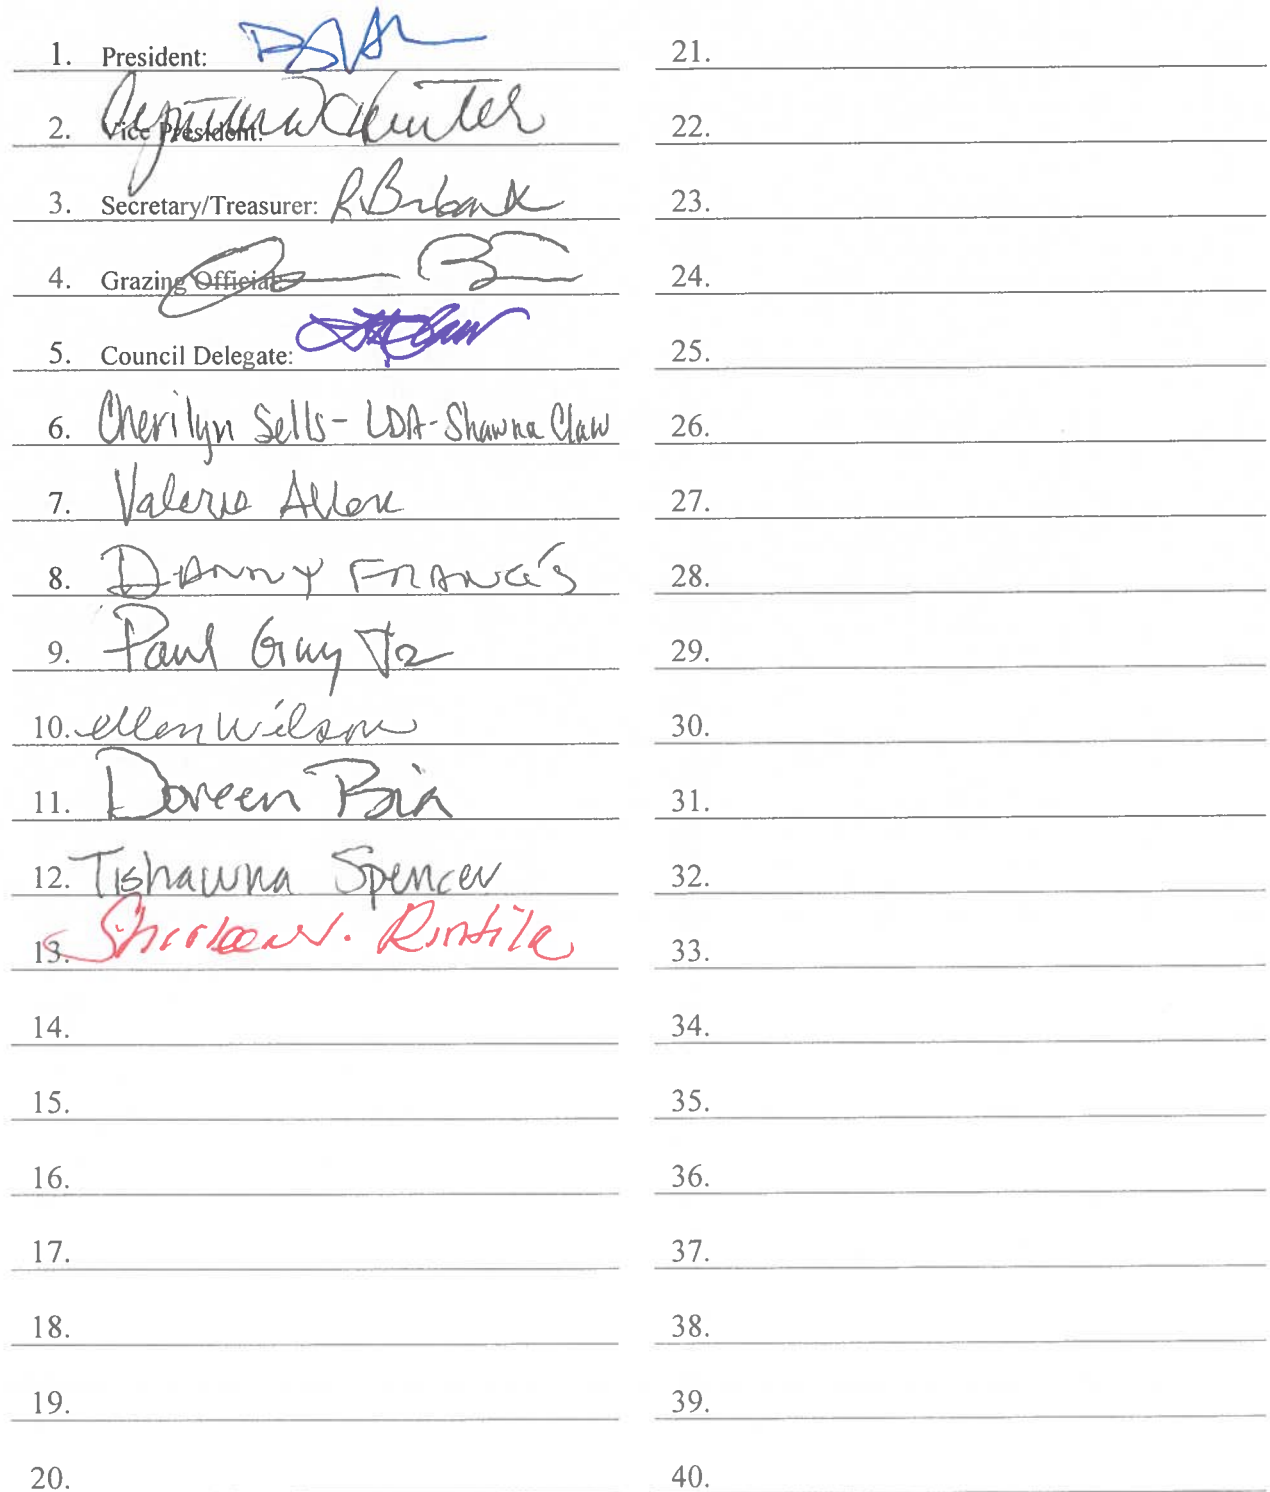 1. President:
2. Vice President:
3. Secretary/Treasurer: R Burbank
4. Grazing Official:
5. Council Delegate:
6. Cherilyn Sells - LDA - Shawna Claw
7. Valerie Allen
8. DANNY FRANCIS
9. Paul Guy Jr
10. ellen Wilson
11. Doreen Bia
12. Tishawna Spencer
13.
14.
15.
16.
17.
18.
19.
20.
21.
22.
23.
24.
25.
26.
27.
28.
29.
30.
31.
32.
33.
34.
35.
36.
37.
38.
39.
40.